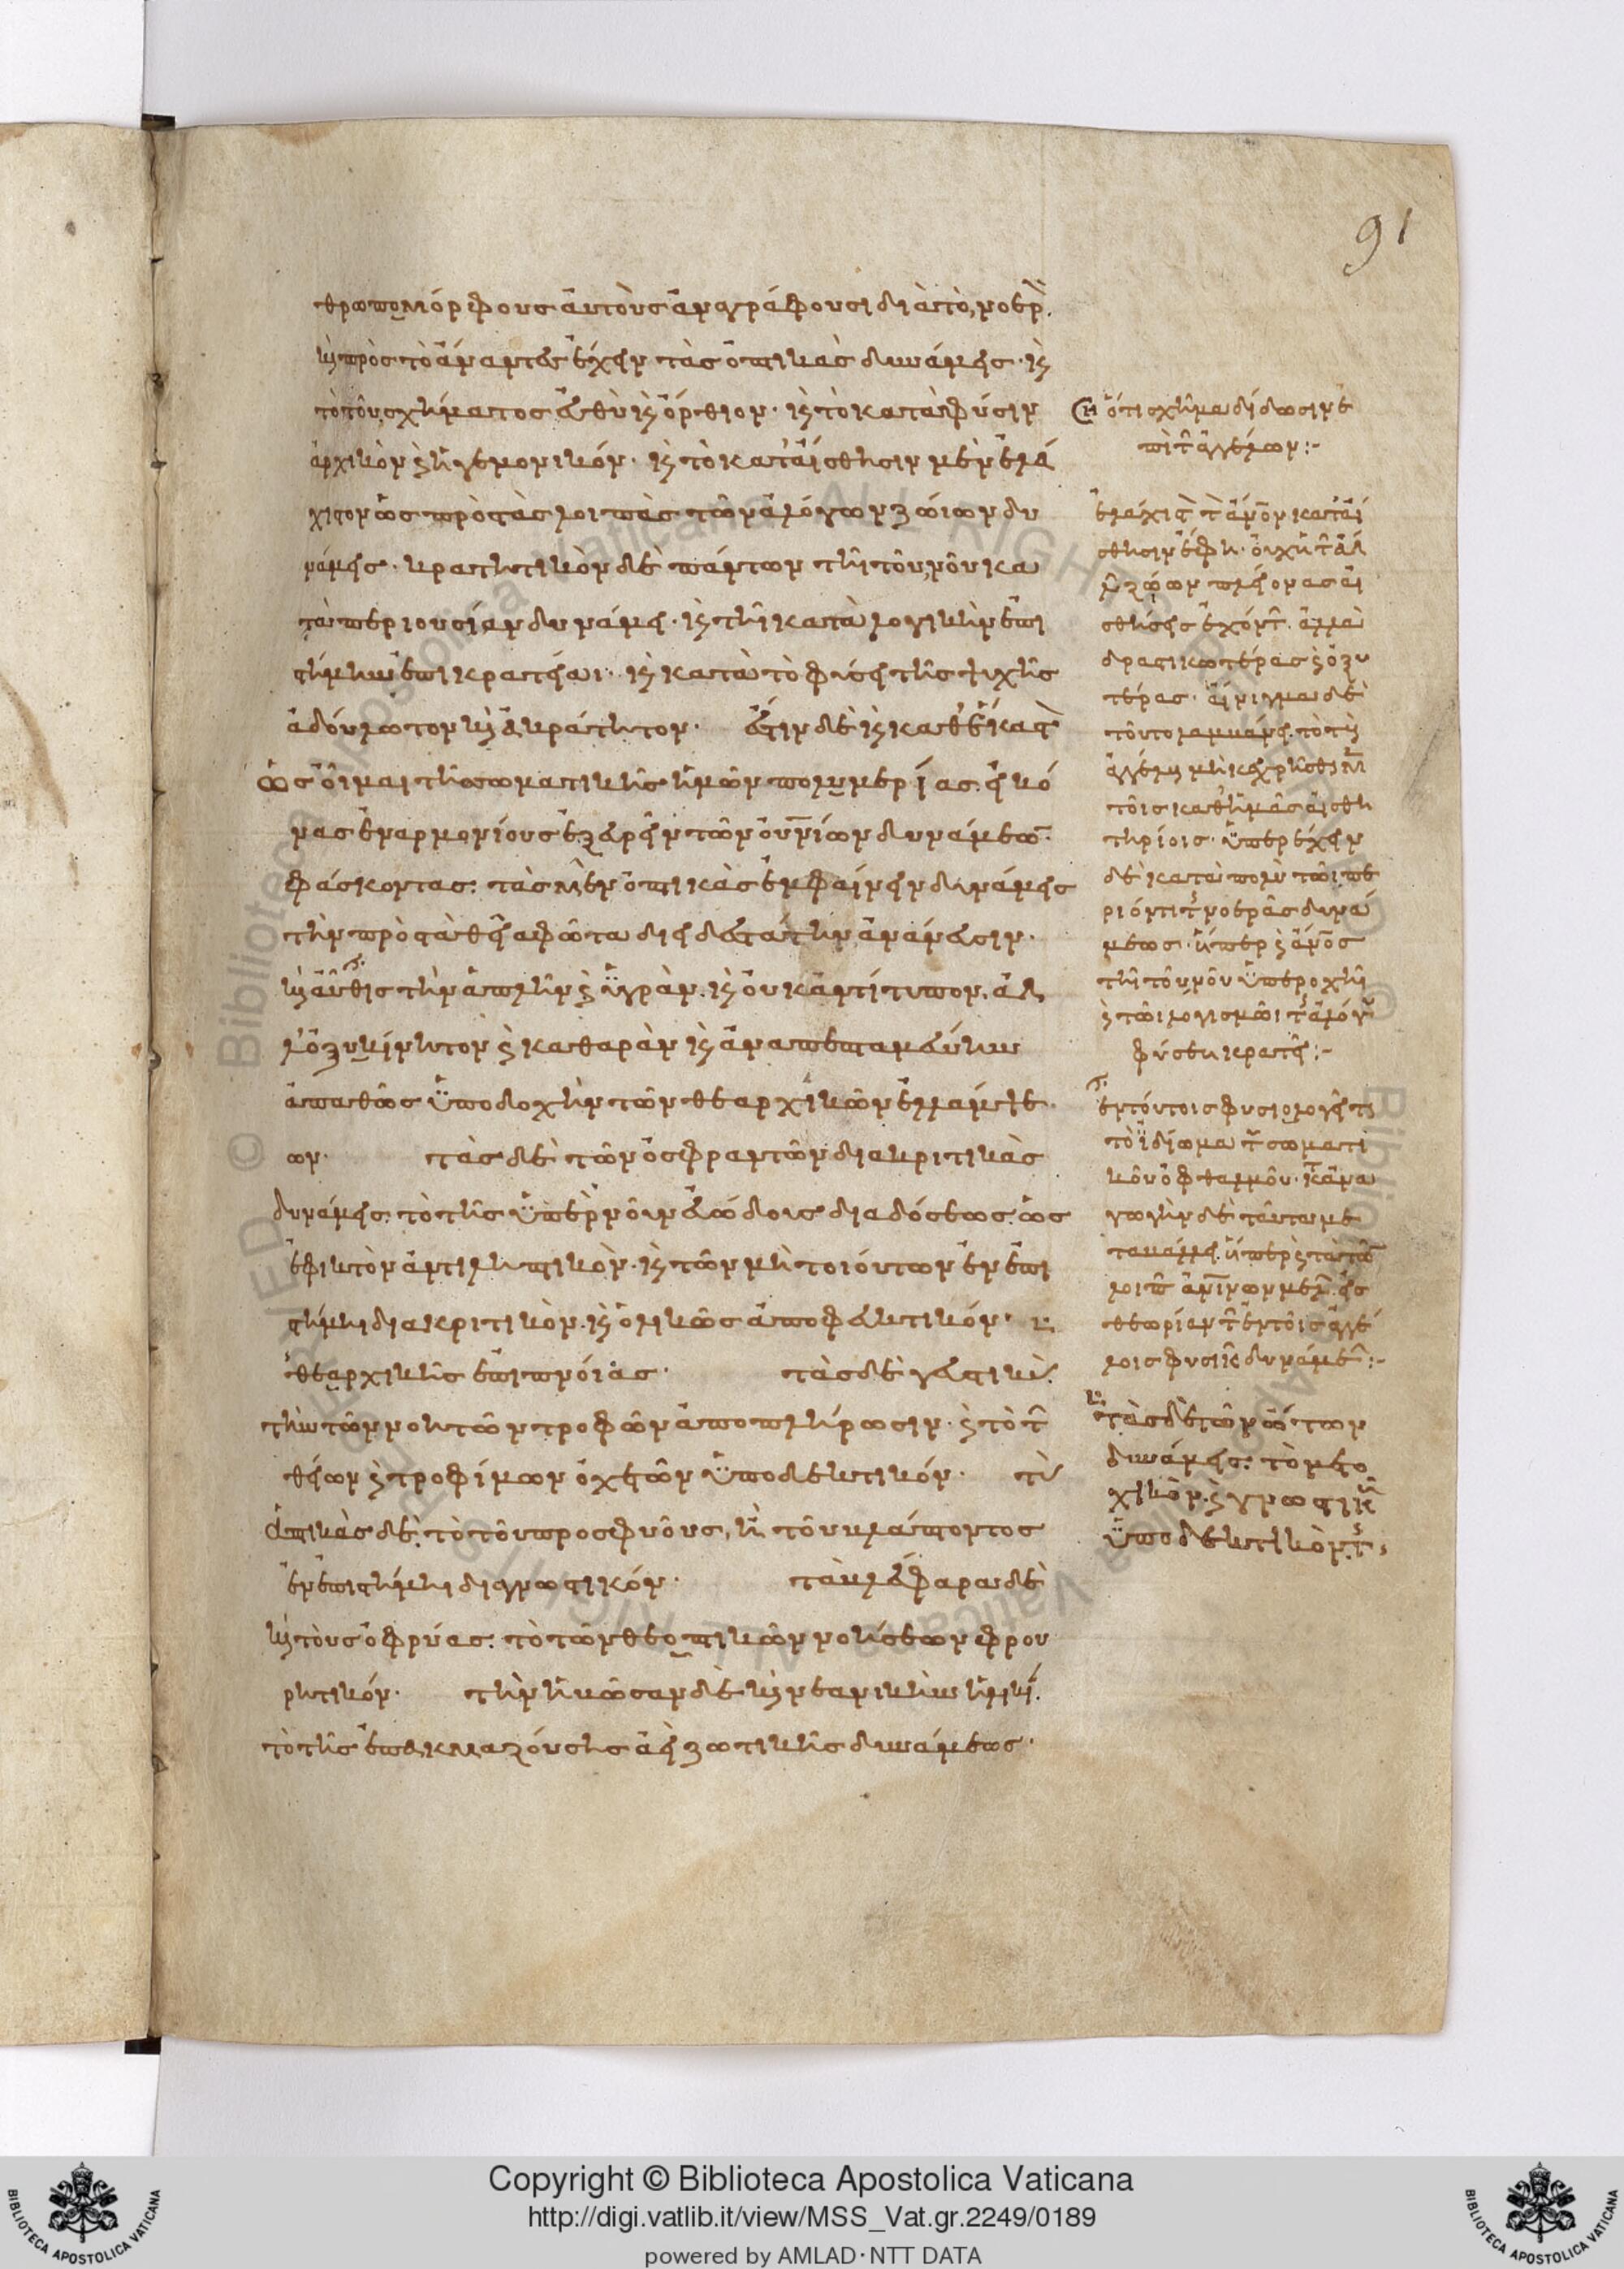 θρωπομόρφους αὐτοὺς ἀναγράφουσι διὰ τὸ νοερὸν·
καὶ πρὸς τὸ ἄναντες ἔχειν τὰς ὀπτικὰς δυνάμεις· καὶ
τὸ τοῦ σχήματος εὐθὺ καὶ ὄρθιον· καὶ τὸ κατὰ φύσιν
ἀρχικὸν καὶ ἡγεμονικόν· καὶ τὸ κατ' αἴσθησιν μὲν ἐλά
χιστον ὡς πρὸς τὰς λοιπὰς τῶν ἀλόγων ζώιων δυ
νάμεις· κρατητικὸν δὲ πάντων τῆι τοῦ νοῦ κα
τὰ περιουσίαν δυνάμει· καὶ τῆι κατὰ λογικὴν ἐπι
στήμην ἐπικρατείαι· καὶ κατὰ τὸ φύσει τῆς ψυχῆς
ἀδούλωτον καὶ ἀκράτητον· ἔστιν δὲ καὶ καθ' ἕκαστον
ὡς οἶμαι τῆς σωματικῆς ἡμῶν πολυμερίας εἰκό
νας ἐναρμονίους ἐξευρεῖν τῶν οὐρανίων δυνάμεων·
φάσκοντας· τὰς μὲν ὀπτικὰς ἐμφαίνειν δυνάμεις
τὴν πρὸς τὰ θεῖα φῶτα διειδεστάτην ἀνάνευσιν·
καὶ αὖθις τὴν ἁπλὴν καὶ ὑγρὰν· καὶ οὐκ ἀντίτυπον, ἀλ
λ' ὀξυκίνητον καὶ καθαρὰν καὶ ἀναπεπταμένην
ἀπαθῶς ὑποδοχὴν τῶν θεαρχικῶν ἐλλάμψε
ων· τὰς δὲ τῶν ὀσφραντῶν διακριτικὰς
δυνάμεις· τὸ τῆς ὑπὲρ νοῦν εὐώδους διαδόσεως· ὡς
ἐφικτὸν ἀντιληπτικὸν· καὶ τῶν μὴ τοιούτων ἐν ἐπι
στήμηι διακριτικὸν· καὶ ὁλικῶς ἀποφευκτικόν·
θεαρχικῆς ἐπιπνοίας· τὰς δὲ γευστικὰς·
τὴν τῶν νοητῶν τροφῶν ἀποπλήρωσιν· καὶ τὸ τῶν
θείων καὶ τροφίμων ὀχετῶν ὑποδεκτικόν· τὰς
ἁπτικὰς δὲ· τὸ τοῦ προσφυοῦς, ἢ τοῦ βλάπτοντος
ἐν ἐπιστήμηι διαγνωστικόν· τὰ βλέφαρα δὲ
καὶ τοὺς ὀφρύας· τὸ τῶν θεοπτικῶν νοήσεων φρου
ρητικόν· τὴν ἡβῶσαν δὲ καὶ νεανικὴν ἡλικίαν·
τὸ τῆς ἐπακμαζούσης ἀεὶ ζωτικῆς δυνάμεως·
ὅτι σχῆμα δίδωσιν ἐ
πὶ τῶν ἀγγέλων:-
ἐλάχιστον τὸν ἄνθρωπον κατ' αἴ
σθησιν ἔφη· οὐχ ἡ τῶν ἀλ
ζώων πλείονας αἰ
σθήσεις ἐχόντων· ἀλλὰ
δραστικωτέρας καὶ ὀξυ
τέρας· αἴνιγμα δὲ
τοῦτο λαμβάνει· τὸ τοὺς
ἀγγέλους μὴ κεχρῆσθαι
τοῖς καθ' ἡμᾶς αἰσθη
τηρίοις· ὑπερέχειν
δὲ κατὰ πολὺ τῶι πε
ριόντι τῆς νοερᾶς δυνά
μεως· ἥπερ καὶ ἄνθρωπος
τῆι τοῦ νοῦ ὑπεροχῆι
καὶ τῶι λογισμῶι τῆς ἀλόγου
φύσεως κρατεῖ:-
ἐν τούτοις φυσιολογεῖ
τὸ ἰδίωμα τοῦ σωματι
κοῦ ὀφθαλμοῦ· κατὰ ἀνα
γωγὴν δὲ ταῦτα με
ταβάλλει· ὥσπερ καὶ τὰ τῶν
λοιπῶν ἀνθρωπίνων μερῶν· εἰς
θεωρίαν τῶν ἐν τοῖς ἀγγέ
λοις φυσικῶν δυνάμεων:-
τὰς δὲ τῶν ὤτων
δυνάμεις· τὸ μετο
χικὸν· καὶ γνωστικῶς
ὑποδεκτικὸν τῆς
91
Copyright © Biblioteca Apostolica Vaticana
http://digi.vatlib.it/view/MSS_Vat.gr.2249/0189
powered by AMLAD·NTT DATA
BIBLIOTECA APOSTOLICA VATICANA
BIBLIOTECA APOSTOLICA VATICANA